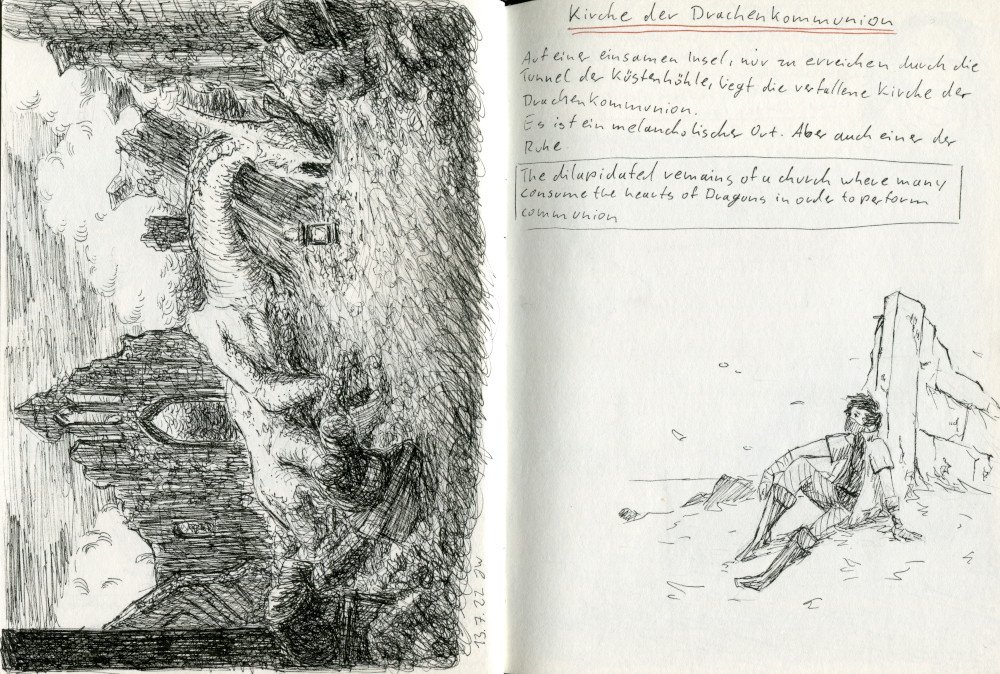 Kirche der Drachenkommunion
Auf einer einsamen Insel, nur zu erreichen durch die
Tunnel der Küstenhöhle, liegt die verfallene Kirche der
Drachenkommunion.
Es ist ein melancholischer Ort. Aber auch einer der
Ruhe
The dilapidated remains of a church where many
consume the hearts of Dragons in order to perform
communion
13.7.22 JW